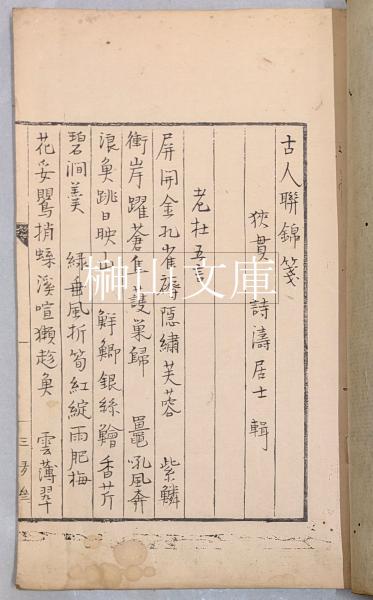 古人聯錦箋
狹貫 詩濤居士 輯
老杜五言
屏開金孔雀褥隱繡芙蓉 紫鱗
衝岸躍蒼隼護巢歸 鼉吼風奔
浪魚跳日映山 鮮鯽銀絲鱠香芹
碧澗羹 綠垂風折筍紅綻雨肥梅
花妥鶯捎蝶溪喧獺趁魚 雲薄翠
榊山文庫